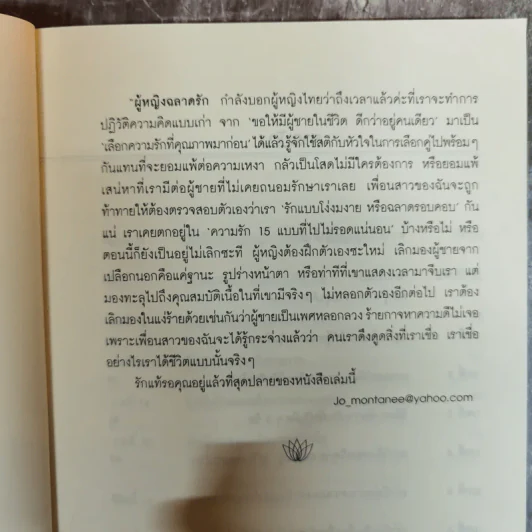 "ผู้หญิงฉลาดรัก กำลังบอกผู้หญิงไทยว่าถึงเวลาแล้วค่ะที่เราจะทำการ
ปฏิวัติความคิดแบบเก่า จาก 'ขอให้มีผู้ชายในชีวิต ดีกว่าอยู่คนเดียว' มาเป็น
'เลือกความรักที่คุณภาพมาก่อน' ได้แล้วรู้จักใช้สติกับหัวใจในการเลือกคู่ไปพร้อมๆ
กันแทนที่จะยอมแพ้ต่อความเหงา กลัวเป็นโสดไม่มีใครต้องการ หรือยอมแพ้
เสน่หาที่เรามีต่อผู้ชายที่ไม่เคยถนอมรักษาเราเลย เพื่อนสาวของฉันจะถูก
ท้าทายให้ต้องตรวจสอบตัวเองว่าเรา 'รักแบบโง่งมงาย หรือฉลาดรอบคอบ' กัน
แน่ เราเคยตกอยู่ใน 'ความรัก 15 แบบที่ไปไม่รอดแน่นอน' บ้างหรือไม่ หรือ
ตอนนี้ก็ยังเป็นอยู่ไม่เลิกซะที ผู้หญิงต้องฝึกตัวเองซะใหม่ เลิกมองผู้ชายจาก
เปลือกนอกคือแค่ฐานะ รูปร่างหน้าตา หรือท่าทีที่เขาแสดงเวลามาจีบเรา แต่
มองทะลุไปถึงคุณสมบัติเนื้อในที่เขามีจริงๆ ไม่หลอกตัวเองอีกต่อไป เราต้อง
เลิกมองในแง่ร้ายด้วยเช่นกันว่าผู้ชายเป็นเพศหลอกลวง ร้ายกาจหาความดีไม่เจอ
เพราะเพื่อนสาวของฉันจะได้รู้กระจ่างแล้วว่า คนเราดึงดูดสิ่งที่เราเชื่อ เราเชื่อ
อย่างไรเราได้ชีวิตแบบนั้นจริงๆ
รักแท้รอคุณอยู่แล้วที่สุดปลายของหนังสือเล่มนี้
Jo_montanee@yahoo.com